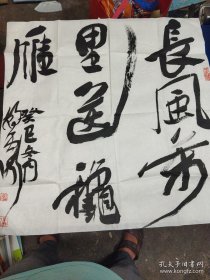 長風萬
里送龝
雁
癸巳
孔夫子旧书网